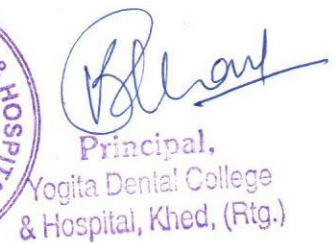 & HOSPIT
Principal,
Yogita Dental College
& Hospital, Khed, (Rtg.)